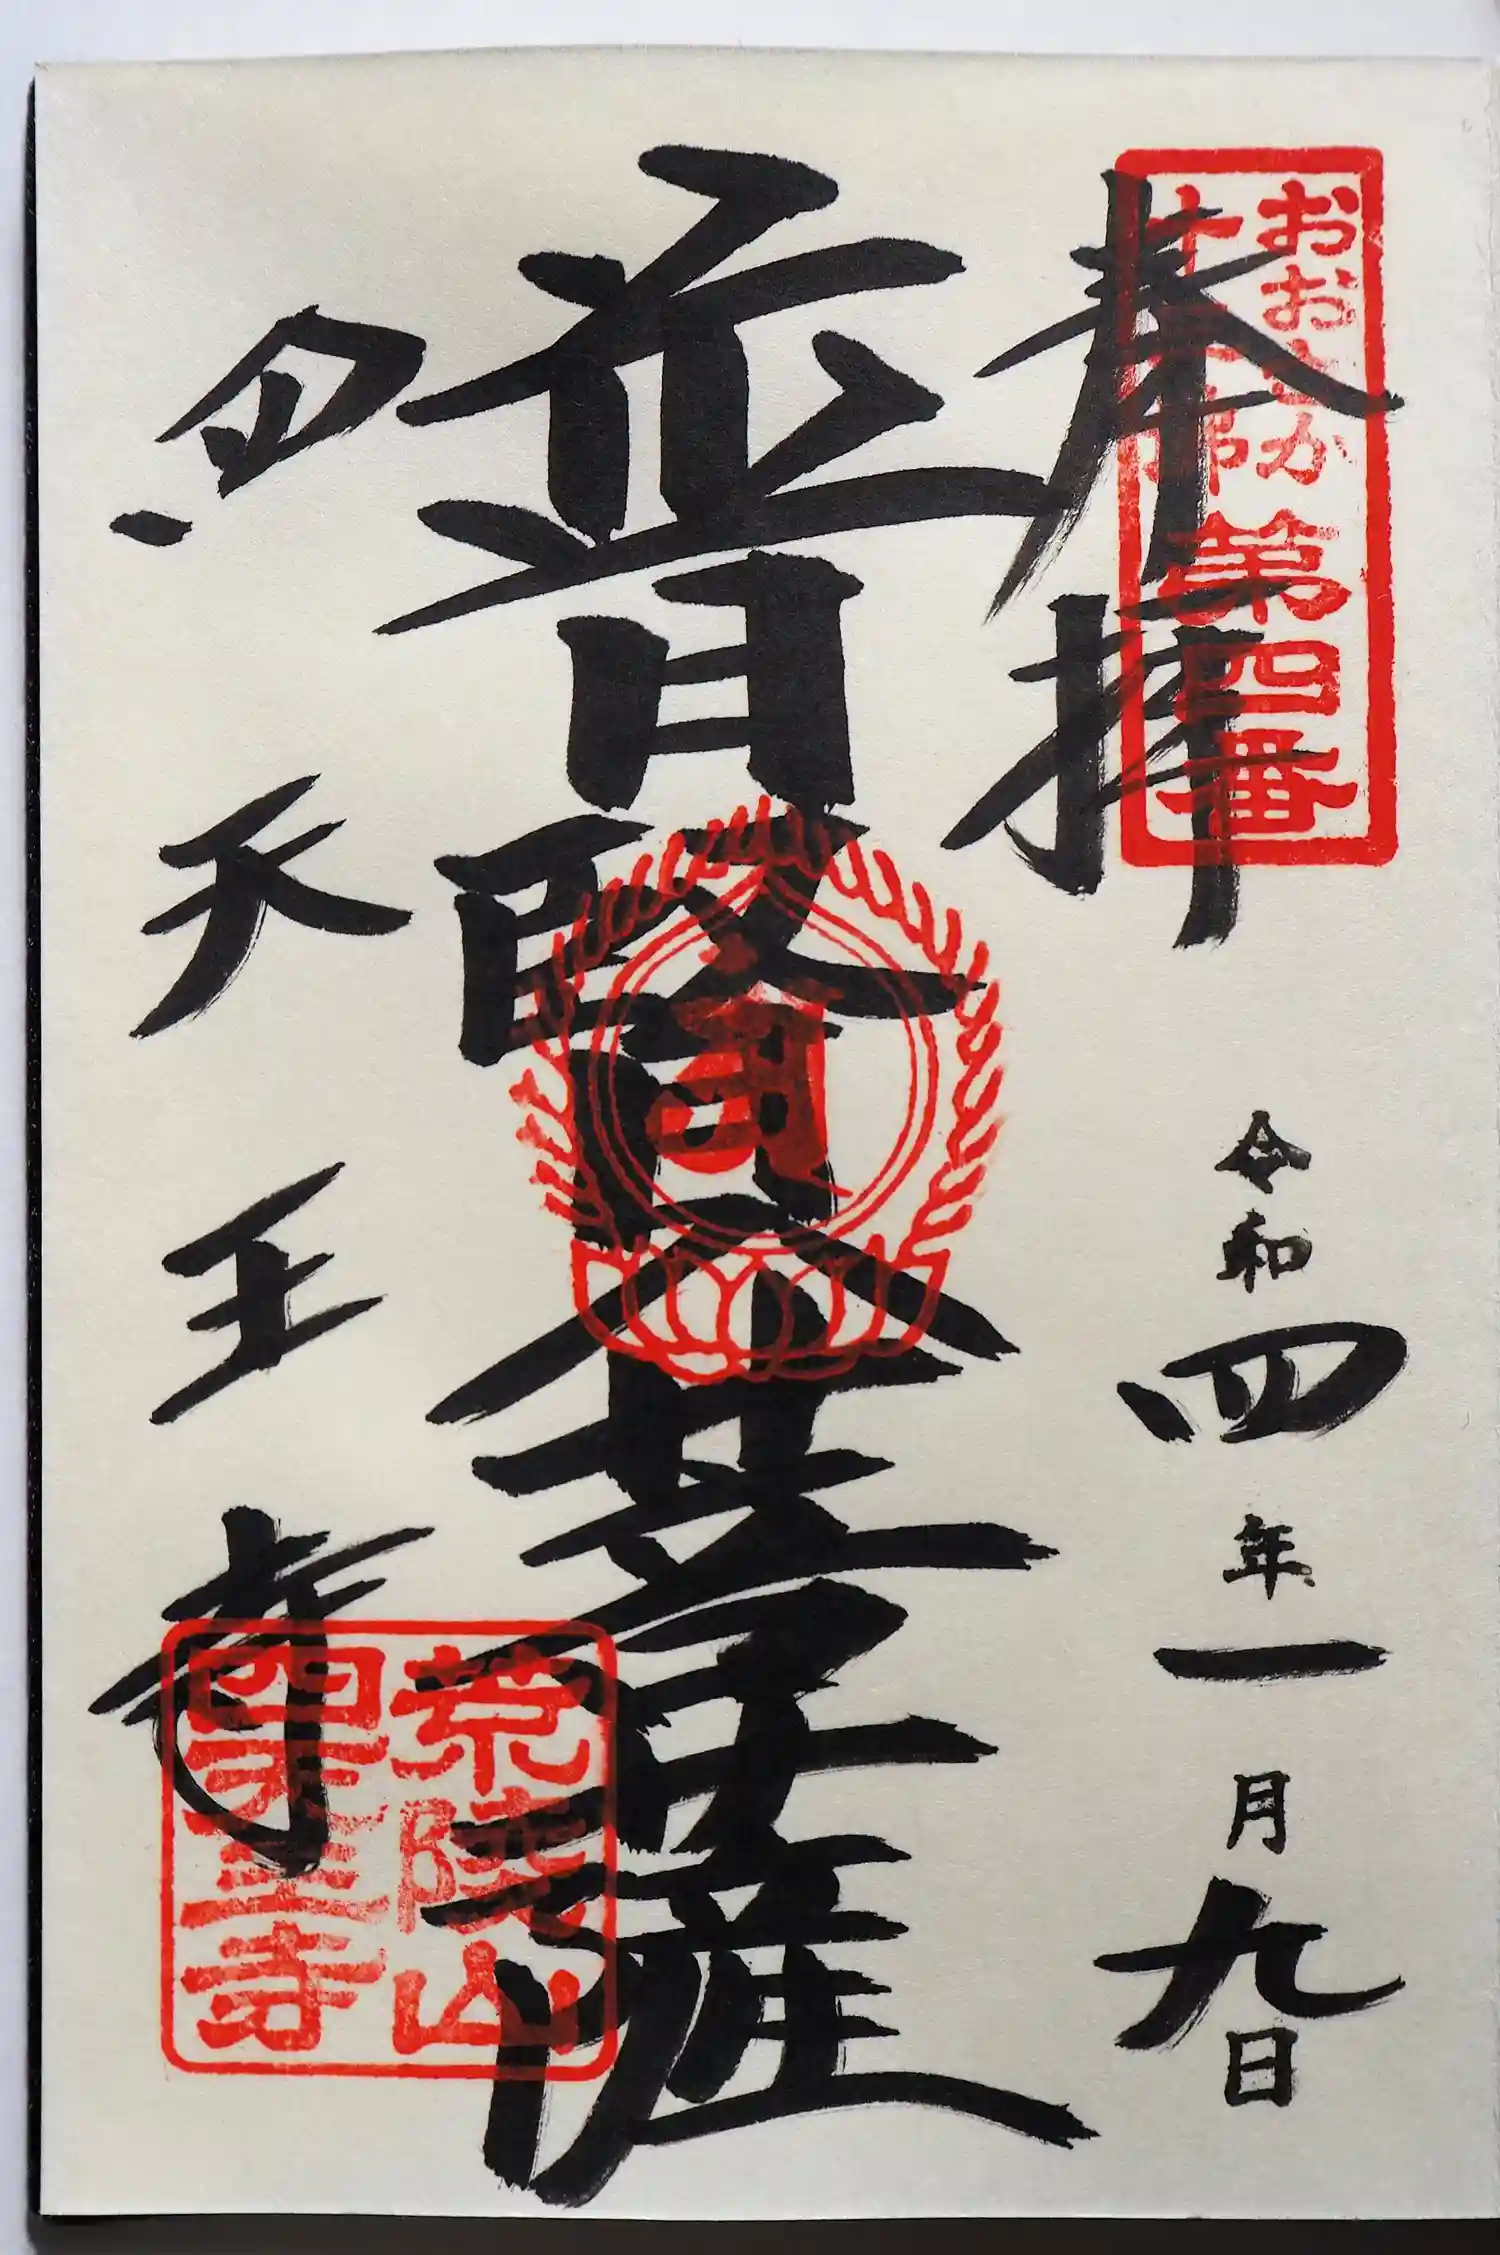 奉拝
おおさか
十三佛
第四番
令和四年一月九日
普賢大菩薩
四天王寺
荒陵山
四天王寺